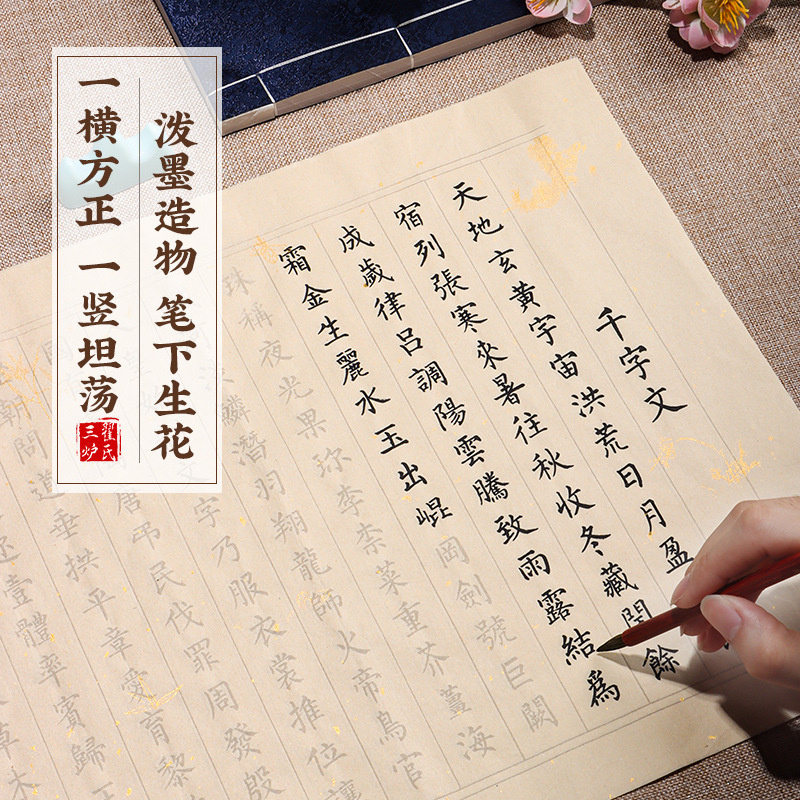 泼墨造物 笔下生花
一横方正 一竖坦荡
瞿氏三炉
千字文
天地玄黃宇宙洪荒日月盈
宿列張寒來暑往秋收冬藏閏餘
成歲律呂調陽雲騰致雨露結爲
霜金生麗水玉出崐岡劍號巨闕
珠稱夜光果珍李柰菜重芥薑海
鱗潛羽翔龍師火帝鳥官
文字乃服衣裳推位讓
唐吊民伐罪周發殷
朝問道垂拱平章愛育黎
壹體率賓歸王
草木